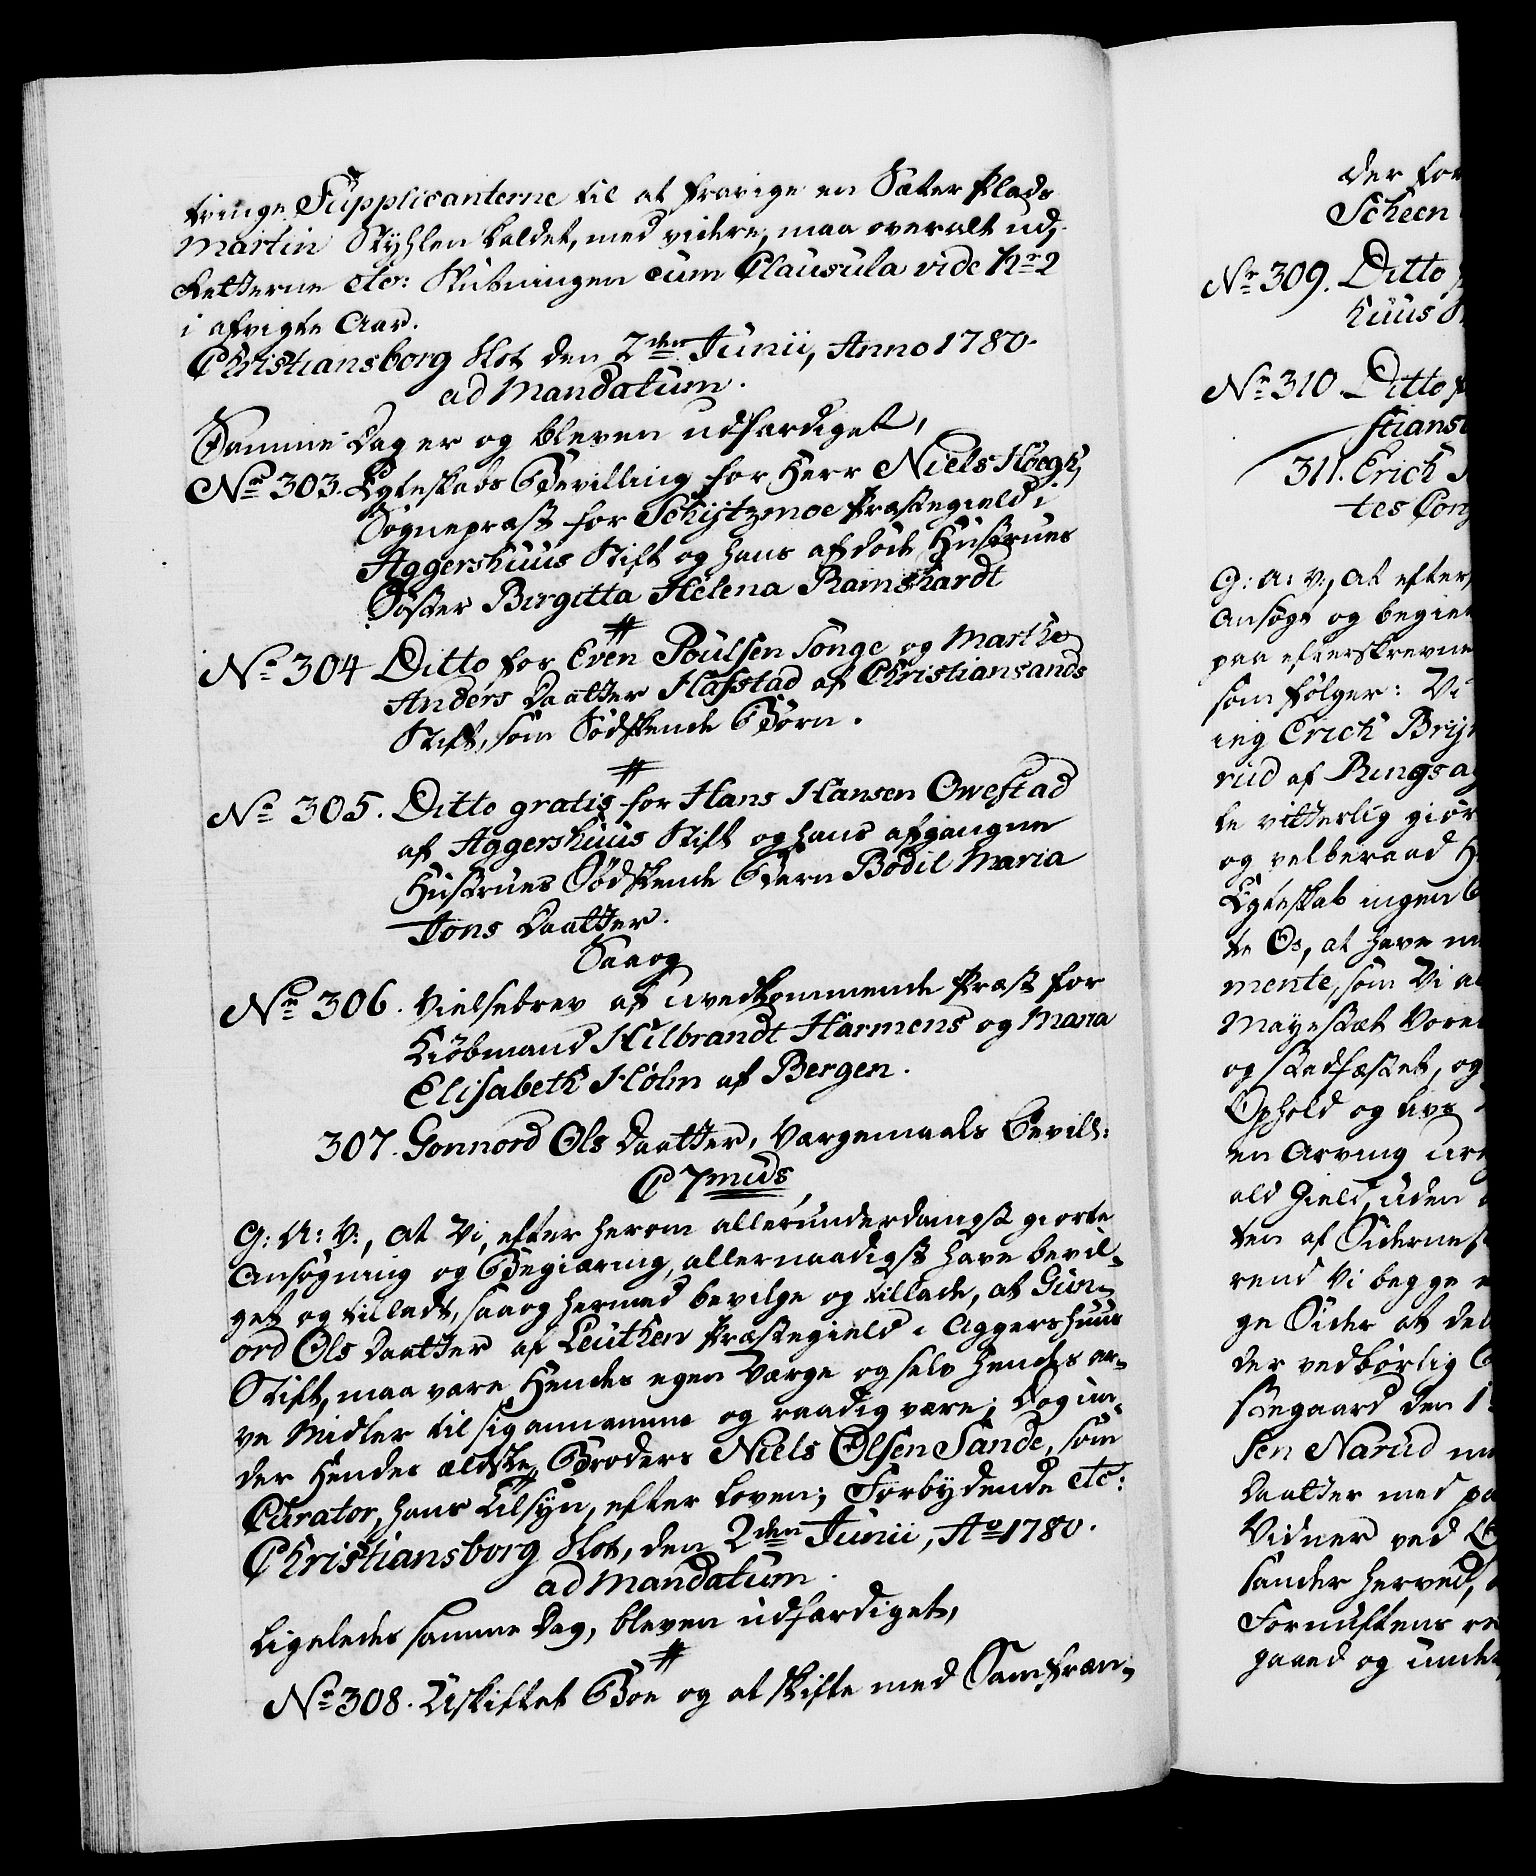 tringe Supplicanterne til at fravige en Sæter Plads
Martin Styhlen kaldet, med videre, maa overalt ud-
Letterne etc: Slutningen cum Clausula vide No 2
i afvigte Aar.
Christiansborg Slot den 2den Junii, Anno 1780.
ad Mandatum.
Samme Dag er og bleven udfærdiget,
No 303. Egteskabs Bevilling for Herr Niels Høegh,
Sognepræst for Schiftzmoe Præstegield i
Aggershuus Stift og hans afdøde Hustrues
Søster Birgitta Helena Ramshardt
#
No 304 Ditto for Even Poulsen Songe og Marthe
Anders Daatter Hafstad af Christiansands
Stift, som Sødskende Børn.
#
No 305. Ditto gratis for Hans Hansen Owestad
af Aggershuus Stift og hans afgangne
Hustrues Sødskende Børn Bodil Maria
Jons Daatter.
Saa og
No 306. Vielsebrev af uvedkommende Præst for
Kiøbmand Hilbrandt Harmens og Maria
Elisabeth Holm af Bergen.
307. Gonnord Ols Daatter, Vergemaals Bevill:
C 7mus
G: A: V:, at Vi, efter herom allerunderdanigst giorte
Ansøgning og Begiæring, allernaadigst have bevil-
get og tilladt, saa og hermed bevilge og tillade, at Gun-
ord Ols Daatter af Leuthen Præstegield i Aggershuus
Stift, maa være Hendes egen Værge og selv Hendes ar-
ve Midler til sig annamme og raadig være; Dog un-
der Hendes ældste Broders Niels Olsen Sande, som
Curator, hans Tilsyn, efter Loven; Forbydende etc:
Christiansborg Slot, den 2den Junii, Ao 1780.
ad Mandatum.
Ligeledes samme Dag, bleven udfærdiget,
#
No 308. Uskiftet Boe og at skifte med Samfræn-
der for
Scheen
No 309. Ditto
huus
No 310 Ditto
stians
311. Erich
tes Con
G: A: V:, at efter
Ansøge og begie
paa efterskrevne
som følger: Vi
ing Erich Bry
rud af Ringsa
te vitterlig giør
og velberaad H
Egteskab ingen
te Os, at have
mente, som Vi
Mayestæt Vore
og stadfæstet, og
Ophold og Livs
en Arving
ald Gield, uden
ten af Sidernes
rend Vi begge
ge Sider at del
der vedbørlig
steegaard den 1
sen Narud
Daatter med
Vidner ved
sander herved,
Fornuftens
gaaed og unde